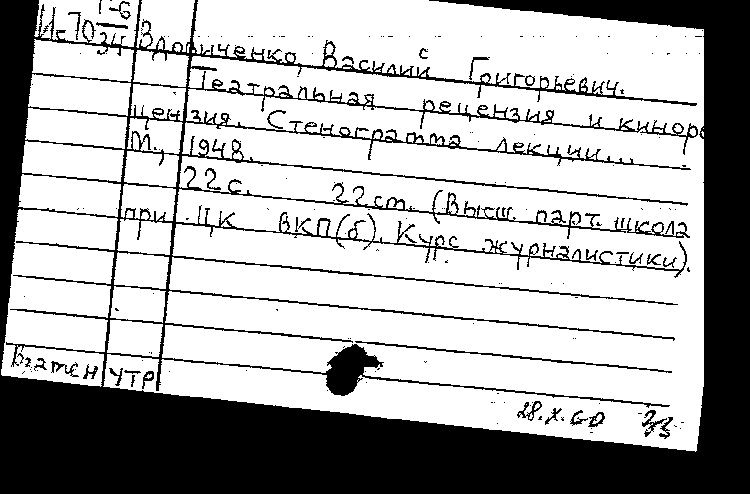 Г-6
И-70
34
Вдовиченко, Василий Григорьевич.
Театральная рецензия и киноре
цензия. Стенограмма лекции...
М., 1948.
22 с. 22 ст. (Высш. парт. школа
при ЦК ВКП(б). Курс журналистики).
Взамен утр
28.X.60